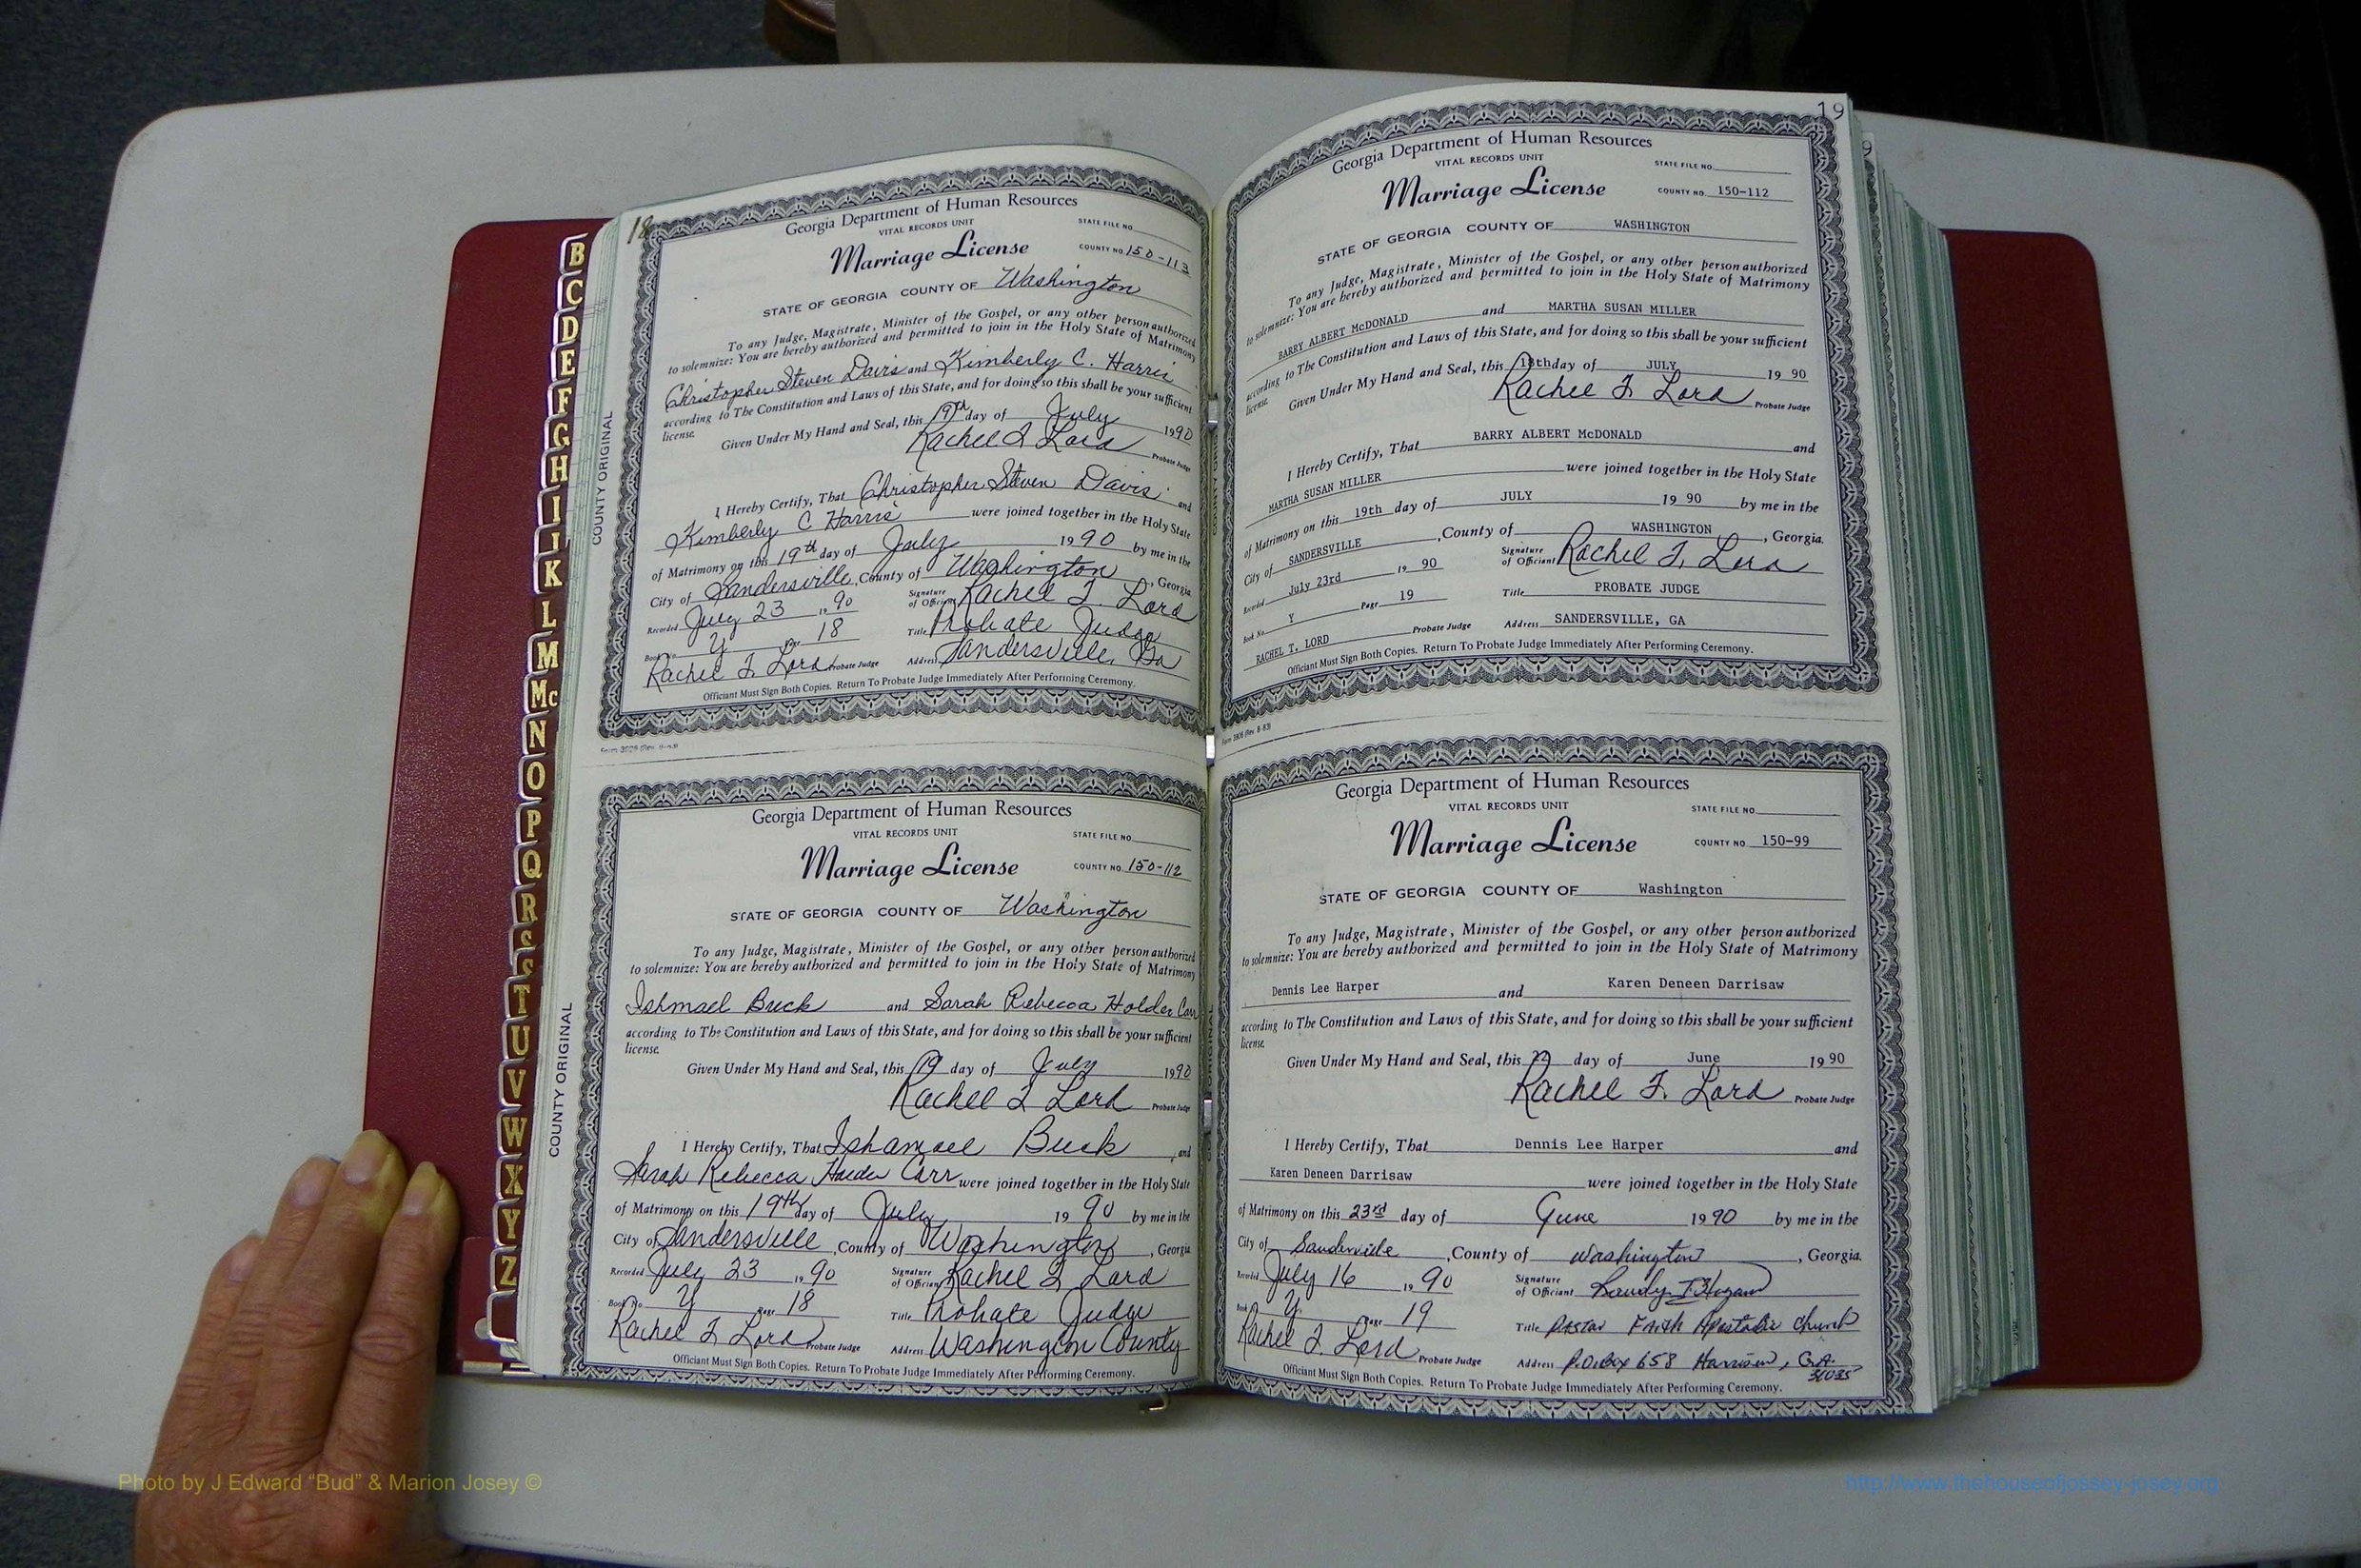 18
Georgia Department of Human Resources
VITAL RECORDS UNIT
STATE FILE NO.
Marriage License
COUNTY NO. 150-113
STATE OF GEORGIA COUNTY OF Washington
To any Judge, Magistrate, Minister of the Gospel, or any other person authorized
to solemnize: You are hereby authorized and permitted to join in the Holy State of Matrimony
Christopher Steven Davis and Kimberly C. Harris
according to The Constitution and Laws of this State, and for doing so this shall be your sufficient
license.
Given Under My Hand and Seal, this 19th day of July 1990
Rachel T. Lord Probate Judge
I Hereby Certify, That Christopher Steven Davis and
Kimberly C Harris were joined together in the Holy State
of Matrimony on this 19th day of July 1990 by me in the
City of Sandersville, County of Washington, Georgia
Recorded July 23 1990 Signature of Officiant Rachel T. Lord
Book No. Y Page 18 Title Probate Judge
Rachel T. Lord Probate Judge Address Sandersville, Ga
Officiant Must Sign Both Copies. Return To Probate Judge Immediately After Performing Ceremony.
COUNTY ORIGINAL
Georgia Department of Human Resources
VITAL RECORDS UNIT
STATE FILE NO.
Marriage License
COUNTY NO. 150-112
STATE OF GEORGIA COUNTY OF Washington
To any Judge, Magistrate, Minister of the Gospel, or any other person authorized
to solemnize: You are hereby authorized and permitted to join in the Holy State of Matrimony
Ishmael Buck and Sarah Rebecca Holder Carr
according to The Constitution and Laws of this State, and for doing so this shall be your sufficient
license.
Given Under My Hand and Seal, this 19 day of July 1990
Rachel T Lord Probate Judge
I Hereby Certify, That Ishamael Buck and
Sarah Rebecca Holder Carr were joined together in the Holy State
of Matrimony on this 19th day of July 1990 by me in the
City of Sandersville, County of Washington, Georgia
Recorded July 23 1990 Signature of Officiant Rachel T Lord
Book No. Y Page 18 Title Probate Judge
Rachel T. Lord Probate Judge Address Washington County
Officiant Must Sign Both Copies. Return To Probate Judge Immediately After Performing Ceremony.
COUNTY ORIGINAL
19
Georgia Department of Human Resources
VITAL RECORDS UNIT
STATE FILE NO.
Marriage License
COUNTY NO. 150-112
STATE OF GEORGIA COUNTY OF WASHINGTON
To any Judge, Magistrate, Minister of the Gospel, or any other person authorized
to solemnize: You are hereby authorized and permitted to join in the Holy State of Matrimony
BARRY ALBERT McDONALD and MARTHA SUSAN MILLER
according to The Constitution and Laws of this State, and for doing so this shall be your sufficient
license.
Given Under My Hand and Seal, this 18th day of JULY 1990
Rachel T. Lord Probate Judge
I Hereby Certify, That BARRY ALBERT McDONALD and
MARTHA SUSAN MILLER were joined together in the Holy State
of Matrimony on this 19th day of JULY 1990 by me in the
City of SANDERSVILLE, County of WASHINGTON, Georgia.
Recorded July 23rd 1990 Signature of Officiant Rachel T. Lord
Book No. Y Page 19 Title PROBATE JUDGE
RACHEL T. LORD Probate Judge Address SANDERSVILLE, GA
Officiant Must Sign Both Copies. Return To Probate Judge Immediately After Performing Ceremony.
Form 3906 (Rev. 8-83)
Georgia Department of Human Resources
VITAL RECORDS UNIT
STATE FILE NO.
Marriage License
COUNTY NO. 150-99
STATE OF GEORGIA COUNTY OF Washington
To any Judge, Magistrate, Minister of the Gospel, or any other person authorized
to solemnize: You are hereby authorized and permitted to join in the Holy State of Matrimony
Dennis Lee Harper and Karen Deneen Darrisaw
according to The Constitution and Laws of this State, and for doing so this shall be your sufficient
license.
Given Under My Hand and Seal, this 22 day of June 1990
Rachel T. Lord Probate Judge
I Hereby Certify, That Dennis Lee Harper and
Karen Deneen Darrisaw were joined together in the Holy State
of Matrimony on this 23rd day of June 1990 by me in the
City of Sandersville, County of Washington, Georgia.
Recorded July 16 1990 Signature of Officiant Randy
Book Y Page 19 Title Pastor Faith Apostolic Church
Rachel T. Lord Probate Judge Address P.O. Box 658 Harrison, GA. 31035
Officiant Must Sign Both Copies. Return To Probate Judge Immediately After Performing Ceremony.
B
C
D
E
F
G
H
I
J
K
L
M
Mc
N
O
P
Q
R
S
T
U
V
W
X
Y
Z
Photo by J Edward “Bud” & Marion Josey ©
http://www.thehouseofjossey-josey.org